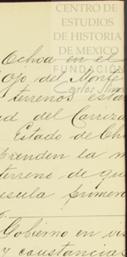 CENTRO DE
ESTUDIOS
DE HISTORIA
DE MEXICO
FUNDACIÓN
Carlos Slim
Ochoa en el
Ojo del Monte
terrenos esta
Estado de Ch
prenden la m
terreno de qu
primera
Gobierno en vis
y constancia